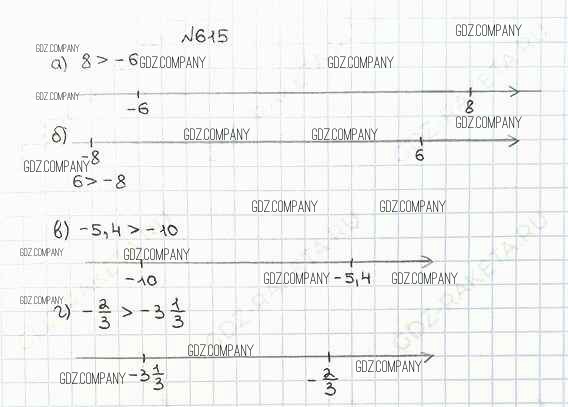 №615
GDZ.COMPANY
GDZ.COMPANY
а) 8 > -6 GDZ.COMPANY GDZ.COMPANY
GDZ.COMPANY
-6 8
б) GDZ.COMPANY GDZ.COMPANY GDZ.COMPANY
-8 6
GDZ.COMPANY
6 > -8
GDZ.COMPANY GDZ.COMPANY
в) -5,4 > -10
GDZ.COMPANY GDZ.COMPANY
-10 GDZ.COMPANY -5,4 GDZ.COMPANY
GDZ.COMPANY
г) -2/3 > -3 1/3
GDZ.COMPANY
GDZ.COMPANY -3 1/3 -2/3 GDZ.COMPANY
GDZ-RAKETA.RU
GDZ-RAKETA.RU